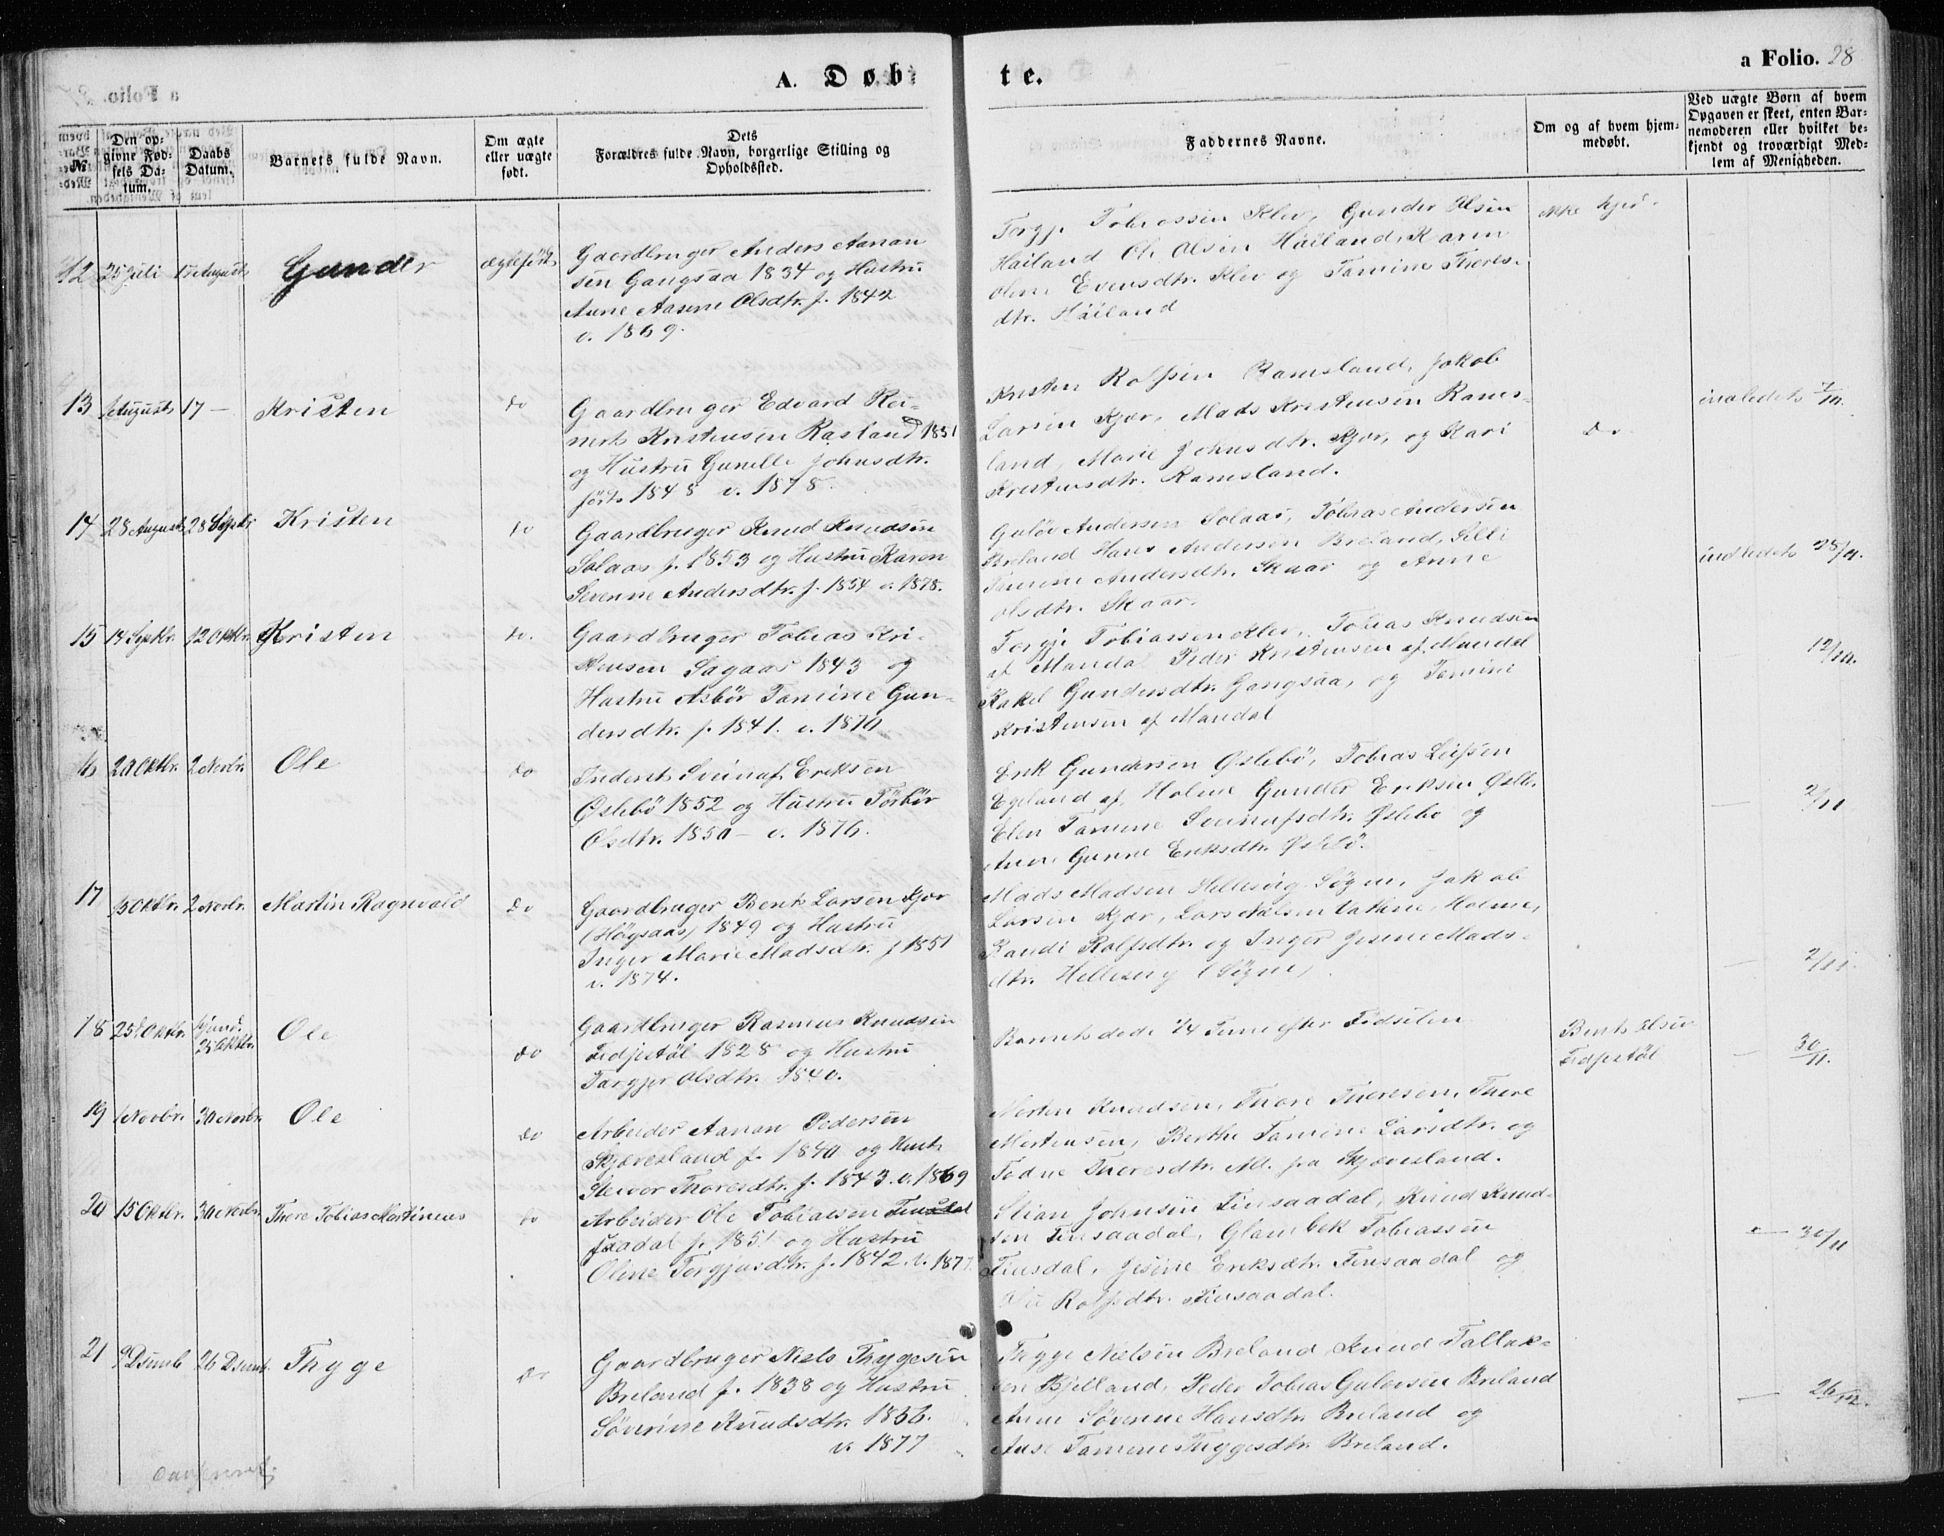 A. Døbte.
a Folio. 28
No
Den opgivne Fødsels Datum.
Daabs Datum.
Barnets fulde Navn.
Om ægte eller uægte født.
Dets Forældres fulde Navn, borgerlige Stilling og Opholdssted.
Faddernes Navne.
Om og af hvem hjemmedøbt.
Ved uægte Børn af hvem Opgaven er skeet, enten Barnemoderen eller hvilket bekjendt og troværdigt Medlem af Menigheden.
12 25 Juli 17 August Gunder ægtefødt
Gaardbruger Anders Aanan
sen Gangsaa 1834 og Hustru
Anne Aasene Olsdtr. f. 1842
v. 1869.
Torgje Tobiassen Klev, Gunder Olsen
Høiland Ole Olsen Høiland, Karen
Oline Evensdtr. Klev og Tamine Thores-
dtr. Høiland
ikke hjd.
13 August 17 — Kristen do
Gaardbruger Edvard Rei-
nert Kristensen Rasland 1851
og Hustru Gunille Johnsdtr.
født 1848 v. 1878.
Kristen Rolfsen Ramsland, Jakob
Larsen Kjær, Mads Kristensen Rams-
land, Marie Johnsdtr. Kjær, og Kari
Kristensdtr. Ramsland.
Do
14 28 August 28 Septbr Kristen do
Gaardbruger Knud Knudsen
Solaas f. 1853 og Hustru Karen
Severine Andersdtr. f. 1854 v. 1878.
Guløv Andersen Solaas, Tobias Andersen
Breland Hans Andersen Breland, Silli
Tamine Andersdtr. Skaar og Anne
Olsdtr. Skaar.
indledet 28/9.
15 14 Septbr. 12 Oktbr. Kristen do.
Gaardbruger Tobias Kri-
stensen Sagaas 1843 og
Hustru Asbør Tamine Gun-
dersdtr. f. 1841. v. 1870
Torgje Tobiassen Klev, Tobias Knudsen
af Mandal Peder Kristensen af Mandal
Rakel Gundersdtr. Gangsaa, og Tamine
Kristensen af Mandal
12/10.
16 20 Oktbr. 2 Novbr. Ole do
Inderst Sveinaf Eriksen
Øslebø 1852 og Hustru Torbør
Olsdtr. 1850 — v. 1876.
Erik Gundersen Øslebø, Tobias Leifsen
Egeland af Holme Gunder Eriksen Øslb.
Elen Tamine Sveinafsdtr. Øslebø og
Anne Gunne Eriksdtr. Øslebø.
— 2/11
17 13 Oktbr. 2 Novbr. Martin Ragnvald Do
Gaardbruger Bent Larsen Kjær
(Høgsaas) 1849 og Hustru
Inger Marie Madsdtr. f 1851
v. 1874.
Mads Madsen Hellesvig Søgne, Jakob
Larsen Kjær, Lars Holme,
Randi Rolfsdtr. og Inger Jesine Mads-
dtr. Hellesvig (Søgne)
— 2/11.
18 25 Oktbr. hjmd. 25 Oktbr. Ole do
Gaardbruger Rasmus Knudsen
Fidjestøl 1828 og Hustru
Targjer Olsdtr. 1840.
Barnet døde 1/4 Time efter Fødselen
Bent Olsen
Fidjestøl
— 30/11.
19 Novbr. 30 Novbr. Ole do
Arbeider Aanon Pedersen
Skjævesland f. 1840 og Hust.
Steivor Thoresdtr. f. 1843. v. 1869
Morten Knudsen, Thore Thoresen, Thore
Mortensen, Berthe Tamine Larsdtr. og
Todne Thoresdtr. All. fra Skjævesland.
20 15 Oktbr. 30 Novbr. Thore Tobias Martinius do
Arbeider Ole Tobiassen
saadal f. 1851 og Hustru
Oline Torgjusdtr. f. 1842. v. 1877.
Stian Johnsen Finsaadal, Knud Knud-
sen Finsaadal, Glambek Tobiassen
Finsdal, Jesine Eriksdtr. Finsaadal og
Rolfsdtr. Finsaadal.
— 30/11
21 9 Dsemb 26 Dsemb. Thyge Do
Gaardbruger Niels Thygesen
Breland f. 1838 og Hustru
Søverine Knudsdtr. 1856.
v. 1877
Thygge Nielsen Breland Knud Tallak-
sen Bjelland, Peder Tobias Guløvsen Breland
Anne Søverine Hansdtr. Breland og
Anse Tamine Thyggesdtr. Breland.
— 26/12.